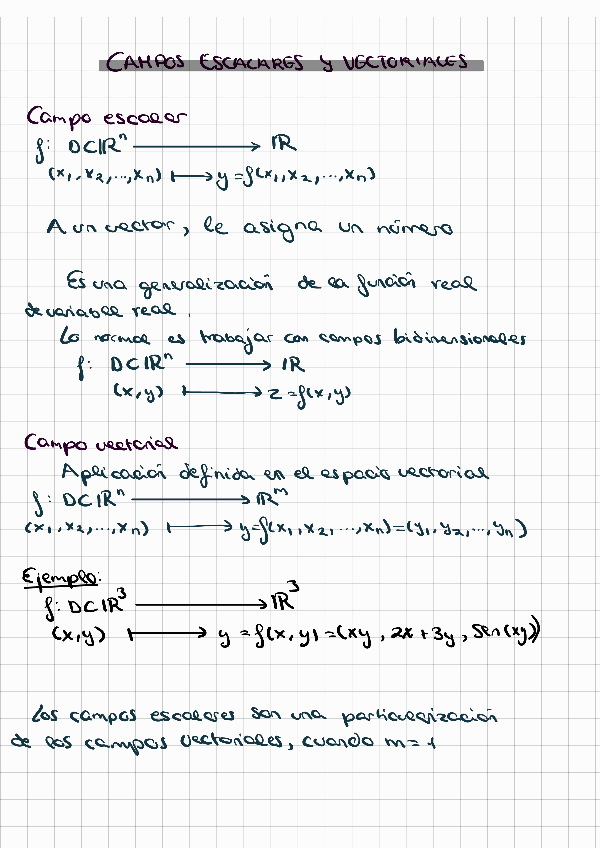 CAMPOS ESCALARES y VECTORIALES
Campo escalar
f: D⊂ℝⁿ ⟶ ℝ
(x₁, x₂, ..., xₙ) ⟼ y = f(x₁, x₂, ..., xₙ)
A un vector, le asigna un número
Es una generalización de la función real
de variable real.
Lo normal es trabajar con campos bidimensionales
f: D⊂ℝⁿ ⟶ ℝ
(x, y) ⟼ z = f(x, y)
Campo vectorial
Aplicación definida en el espacio vectorial
f: D⊂ℝⁿ ⟶ ℝᵐ
(x₁, x₂, ..., xₙ) ⟼ y = f(x₁, x₂, ..., xₙ) = (y₁, y₂, ..., yₙ)
Ejemplo:
f: D⊂ℝ³ ⟶ ℝ³
(x, y) ⟼ y = f(x, y) = (xy, 2x + 3y, sen(xy))
Los campos escalares son una particularización
de los campos vectoriales, cuando m = 1